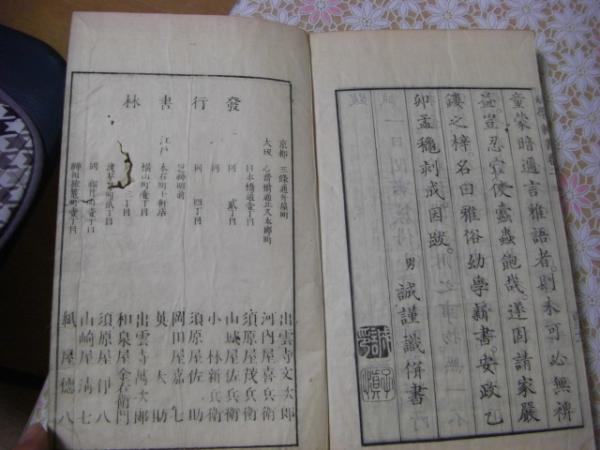 童蒙暗通言雅語者。則未可必無裨
益。豈忍寔使蠹蟲飽哉。遂因請家嚴
鏤之梓。名曰雅俗幼學新書。安政乙
卯孟龝剞成因跋。
男 誠謹識併書
發行書林
京都 三條通升屋町 出雲寺文次郎
大坂 心齋橋通北久太郎町 河內屋喜兵衛
江戸 日本橋通壹丁目 須原屋茂兵衛
同 貳丁目 山城屋佐兵衛
同 小林新兵衛
同 四丁目 須原屋佐助
芝神明前 岡田屋嘉七
本石町十軒店 英大助
橫山町壹丁目 出雲寺萬次郎
和泉屋金右衛門
淺草茅町貳丁目 須原屋伊八
同 山崎屋清七
紙屋德八